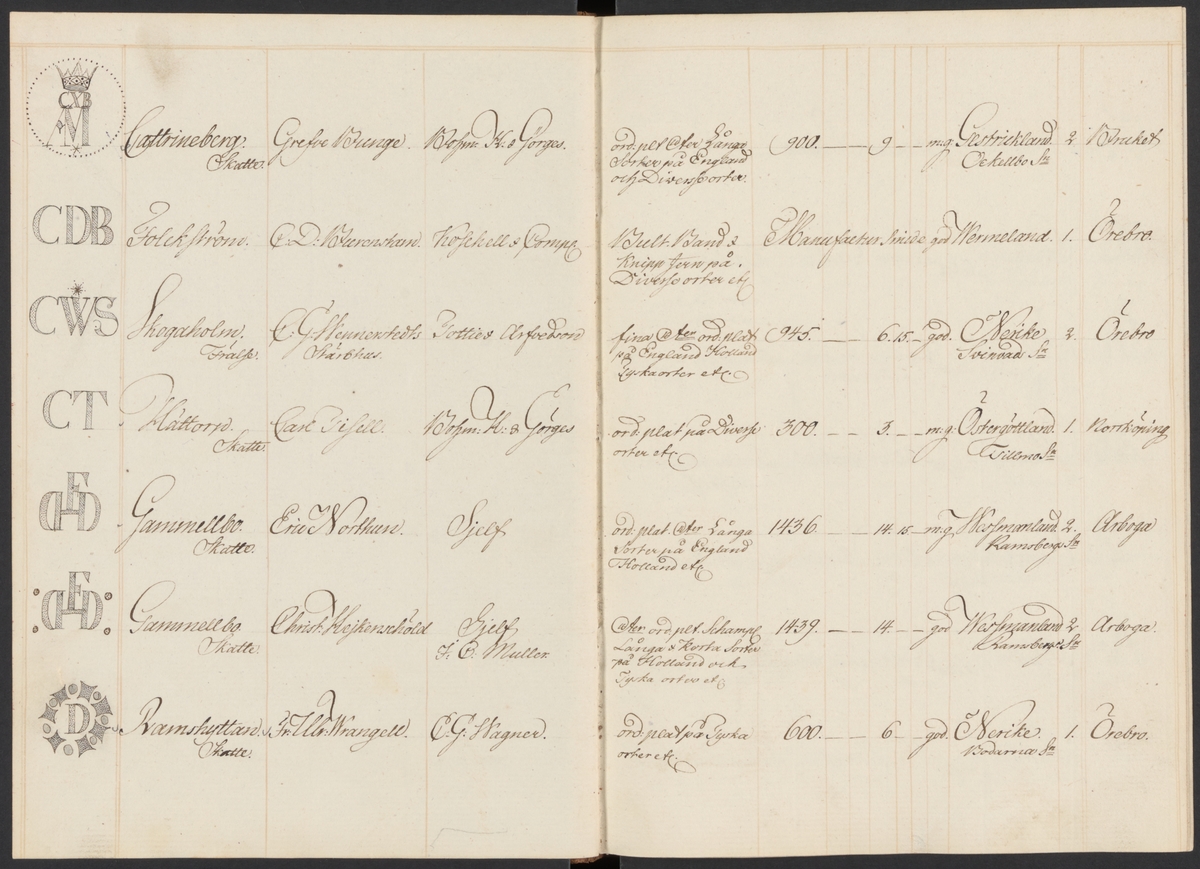 CYB
M
Cattrineberg. Grefve Bunge. Bohm: H. & Görges. ord. plt @ter Långa 900. 9 m:g. Gestrickland. 2. Bruket
Skatte. Sorter på England Ockellbo Sn
och Diverse orter.
CDB Folckström. C. D. Burenstam. Koschell & Comp Bult. Band & Manufactur Smide god Wermeland. 1. Örebro.
Knipp Jern på
Diverse orter etc
CWS Skogaholm. C. G. Wennerstedts fina @ter ord. plat 945. 6. 15. god. Nerike 2. Örebro
Frälse. Stärbhus. på England Holland Svinvad Sn
Tyska orter etc.
CT Hättorp. Carl Tisell. Bohm: H: & Görges ord. plat på Diverse 300. 3. m:g. Östergöttland. 1. Norrköping
Skatte. orter etc Tillmo Sn
Gammellbo. Eric Northun. Sjelf ord. plat. @ter Långa 1436 14. 15 m:g. Westmanland. 2. Arboga
Skatte. Sorter på England Ramsbergs Sn
Holland etc
Gammellbo Christ. Hejkenschöld Sjelf @ter ord. plt. Schampl 1439. 14. god Westmanland 2. Arboga.
Skatte. Muller Långa & Korta Sorter Ramsbergs Sn
på Holland och
Tyska orter etc
D Ramshyttan. Fr: Ulr: Wrangell. C. G. Wagner. ord. plat på Tyska 600. 6 god. Nerike. 1. Örebro.
Skatte. orter etc. Bodarnes Sn